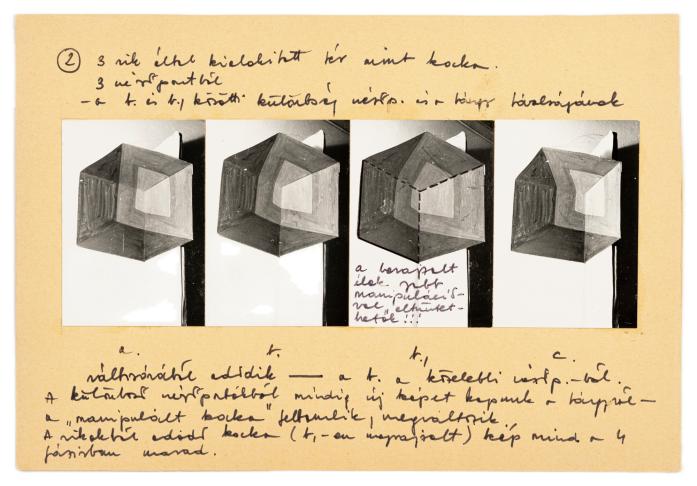 ② 3 sík által kialakított tér mint kocka.
3 nézőpontból
– a b. és b₁, közötti különbség nézőp. és a tárgy távolságának
a berajzolt
élek jobb
manipuláció-
val „eltüntet-
hetők!!!
a. b. b₁, c.
változásából adódik — a b. a közelebbi nézőp.-ból.
A különböző nézőpontokból mindig új képet kapunk a tárgyról –
a „manipulált kocka” feltűnik, megváltozik.
A síkokból adódó kocka (b₁-en megrajzolt) kép mind a 4
fázisban marad.